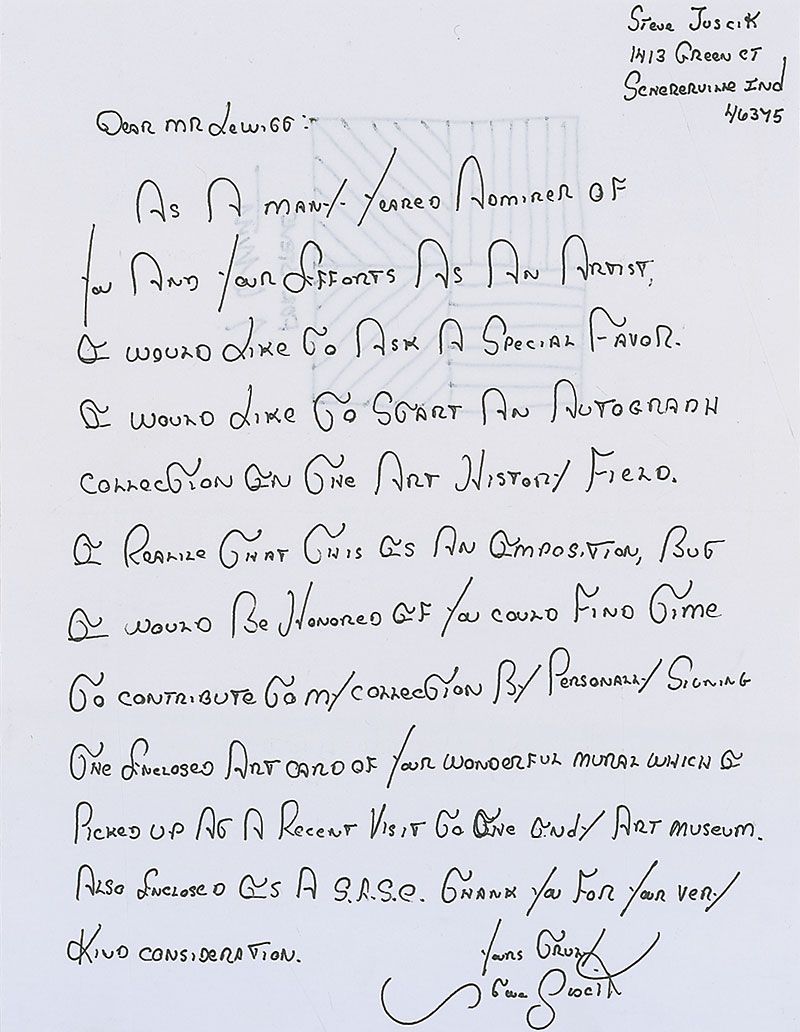 Steve Juscik
1413 Green CT
Schererville Ind
46375
Dear Mr Lewitt:
As A Many-Yeared Admirer of
You And Your Efforts As An Artist,
I would Like To Ask A Special Favor.
I would Like To Start An Autograph
collection In The Art History Field.
I Realize That This Is An Imposition, But
I would Be Honored If You could Find Time
To contribute To my collection By Personally Signing
The Enclosed Art card of Your wonderful mural which I
Picked up At A Recent Visit To The Indy Art museum.
Also Enclosed Is A S.A.S.E. Thank You For Your very
Kind consideration.
Yours Truly,
Steve Juscik